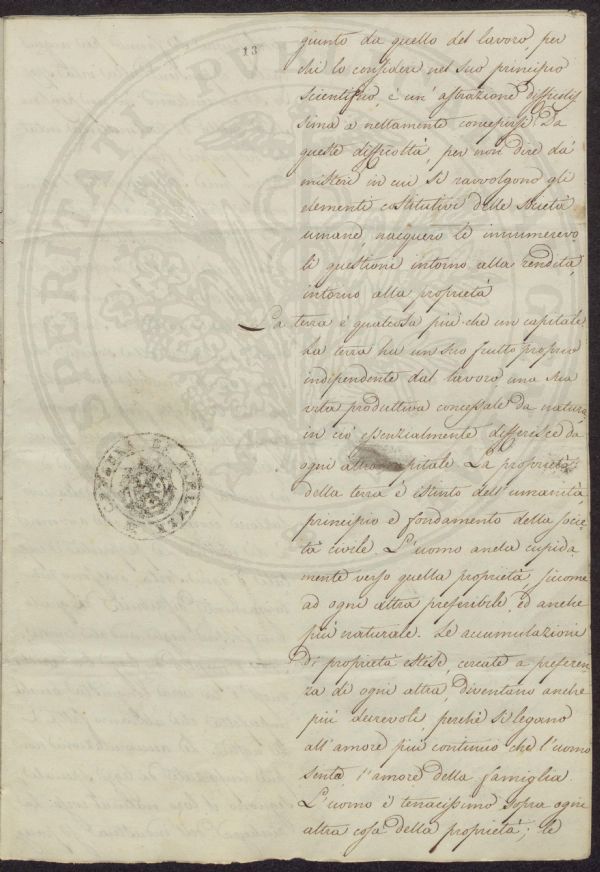 13
giunto da quello del lavoro, per
chi lo consideri nel suo principio
scientifico, è un' astrazione difficilis-
sima a nettamente concepirsi. Da
queste difficoltà, per non dire da'
misteri in cui si ravvolgono gli
elementi costitutivi delle Società
umane, nacquero le innumerevo
li questioni intorno alla rendita,
intorno alla proprietà
La terra è qualcosa più che un capitale.
La terra ha un suo frutto proprio
indipendente dal lavoro una sua
vita produttiva concessale da natura,
in ciò essenzialmente differisce da
ogni altro capitale La proprietà
della terra è istinto dell'umanità,
principio e fondamento della socie
tà civile L'uomo anela cupida-
mente verso quella proprietà, siccome
ad ogni altra preferibile, ed anche
più naturale. Le accumulazioni
di proprietà estese, cercate a preferen
za di ogni altra, diventano anche
più durevoli, perchè si legano
all'amore più continuo che l'uomo
senta, l'amore della famiglia.
L'uomo è tenacissimo sopra ogni
altra cosa della proprietà; le
PROSPERITATI PUBLICAE